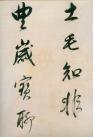 土毛知非
豐歲寶聊